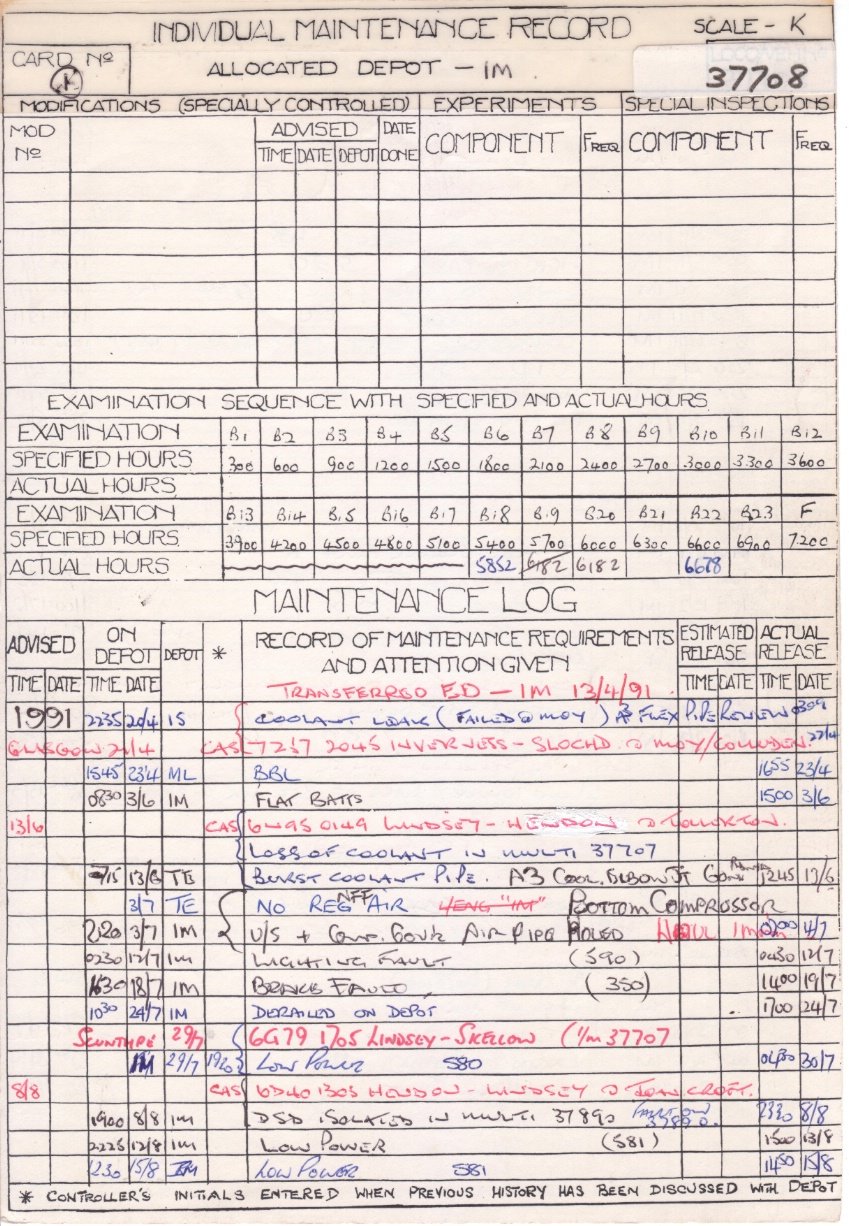 INDIVIDUAL MAINTENANCE RECORD SCALE - K
CARD Nº ALLOCATED DEPOT - IM 37708
K
MODIFICATIONS (SPECIALLY CONTROLLED) EXPERIMENTS SPECIAL INSPECTIONS
MOD Nº ADVISED DATE DONE COMPONENT FREQ COMPONENT FREQ
TIME DATE DEPOT
EXAMINATION SEQUENCE WITH SPECIFIED AND ACTUAL HOURS
EXAMINATION B1 B2 B3 B4 B5 B6 B7 B8 B9 B10 B11 B12
SPECIFIED HOURS 300 600 900 1200 1500 1800 2100 2400 2700 3000 3300 3600
ACTUAL HOURS
EXAMINATION B13 B14 B15 B16 B17 B18 B19 B20 B21 B22 B23 F
SPECIFIED HOURS 3900 4200 4500 4800 5100 5400 5700 6000 6300 6600 6900 7200
ACTUAL HOURS 5852 6182 6182 6678
MAINTENANCE LOG
ADVISED ON DEPOT DEPOT * RECORD OF MAINTENANCE REQUIREMENTS AND ATTENTION GIVEN ESTIMATED RELEASE ACTUAL RELEASE
TIME DATE TIME DATE TIME DATE TIME DATE
TRANSFERRED ED - IM 13/4/91
1991 2235 20/4 IS COOLANT LEAK (FAILED @ MOY) FLEX PIPE RENEW
GLASGOW CAS 7Z37 2045 INVERNESS - SLOCHD @ MOY/CULLODEN. 22/4
1545 23/4 ML BBL 1655 23/4
0830 3/6 IM FLAT BATTS 1500 3/6
13/6 CAS 6W95 0149 LINDSEY - HENDON @ TOLLERTON.
LOSS OF COOLANT IN MULTI 37707
13/6 TE BURST COOLANT PIPE. A3 COOL. ELBOW JT 1245 13/6
3/7 TE NO REG AIR NFF 4/ENG "IM" BOTTOM COMPRESSOR
2120 3/7 IM U/S + COMP. GOVR AIR PIPE HOLED 4/7
0230 12/7 IM LIGHTING FAULT (590) 0430 12/7
1630 18/7 IM BRAKE FAULT, (350) 1400 19/7
1030 24/7 IM DERAILED ON DEPOT 1700 24/7
SCUNTHPE 29/7 6G79 1705 LINDSEY - SKELLOW (I/M 37707
IM 29/7 1920 LOW POWER 580 0430 30/7
8/8 CAS 6D40 1305 HENDON - LINDSEY @ CROFT.
1900 8/8 IM DSD ISOLATED IN MULTI 37890 37890. 2330 8/8
2225 12/8 IM LOW POWER (581) 1500 13/8
1230 15/8 IM LOW POWER 581 1450 15/8
* CONTROLLER'S INITIALS ENTERED WHEN PREVIOUS HISTORY HAS BEEN DISCUSSED WITH DEPOT